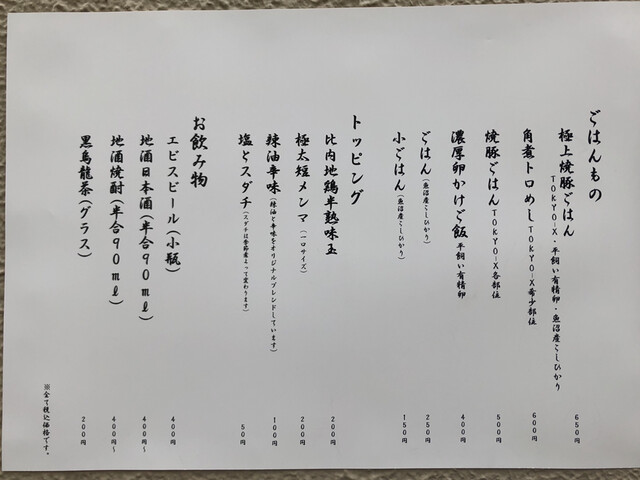 ごはんもの
極上焼豚ごはん 650円
TOKYO-X・平飼い有精卵・魚沼産こしひかり
角煮トロめし TOKYO-X希少部位 600円
焼豚ごはん TOKYO-X各部位 500円
濃厚卵かけご飯 平飼い有精卵 400円
ごはん(魚沼産こしひかり) 250円
小ごはん(魚沼産こしひかり) 150円
トッピング
比内地鶏半熟味玉 200円
極太短メンマ(一口サイズ) 200円
辣油辛味(辣油と辛味をオリジナルブレンドしています) 100円
塩とスダチ(スダチは季節産よって変わります) 50円
お飲み物
エビスビール(小瓶) 400円
地酒日本酒(半合90ml) 400円~
地酒焼酎(半合90ml) 400円~
黒烏龍茶(グラス) 200円
※全て税込価格です。